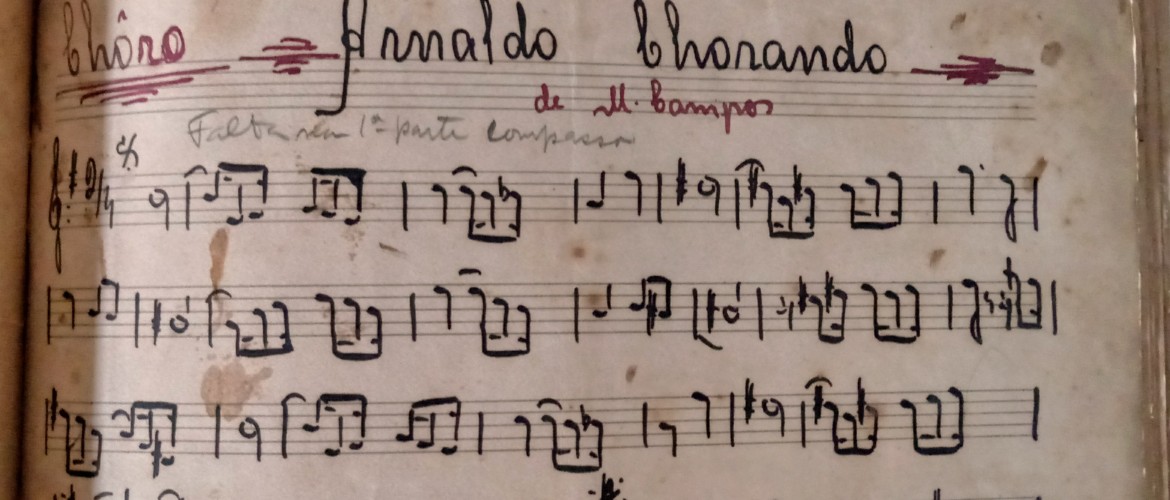 Chôro Arnaldo Chorando
de M. Campos
Falta na 1ª parte compasso
2/4